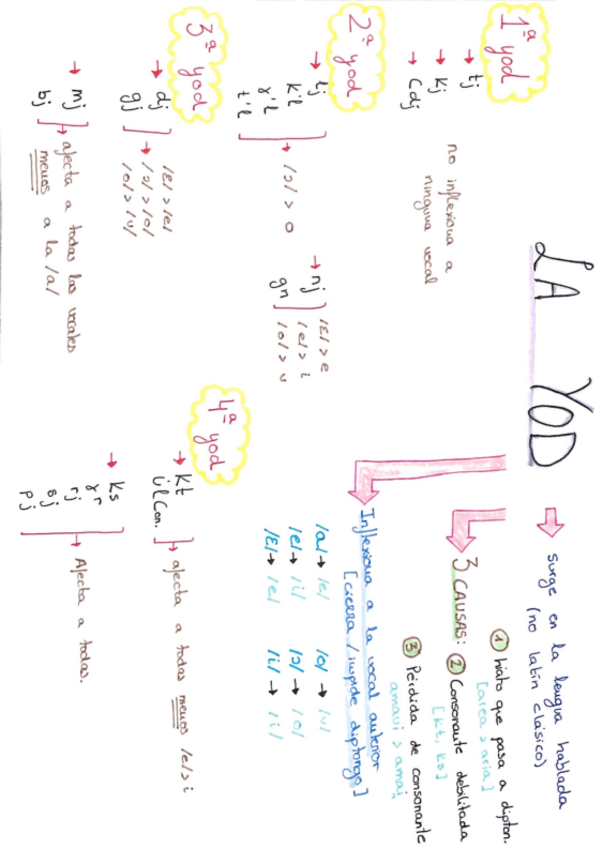 LA YOD
surge en la lengua hablada
(no latín clásico)
3 CAUSAS:
① hiato que pasa a dipton.
[area > aria]
② Consonante debilitada
[kt, ks]
③ Pérdida de consonante
amaui > amai
Inflexiona a la vocal anterior
[cierra / impide diptongo]
/a/ → /e/
/e/ → /i/
/ɛ/ → /e/
/o/ → /u/
/ɔ/ → /o/
/i/ → /i/
1ª yod
→ tj
→ kj
→ Cdj
no inflexiona a
ninguna vocal
2ª yod
→ lj
k'l
g'l
t'l
→ /ɔ/ > o
→ nj
gn
/ɛ/ > e
/e/ > i
/o/ > u
3ª yod
→ dj
gj
→ /ɛ/ > /e/
/ɔ/ > /o/
/o/ > /u/
→ mj
bj
→ afecta a todas las vocales
menos a la /a/
4ª yod
→ kt
ilCon.
→ afecta a todas menos /e/ > i
→ ks
gr
rj
sj
pj
→ Afecta a todas.